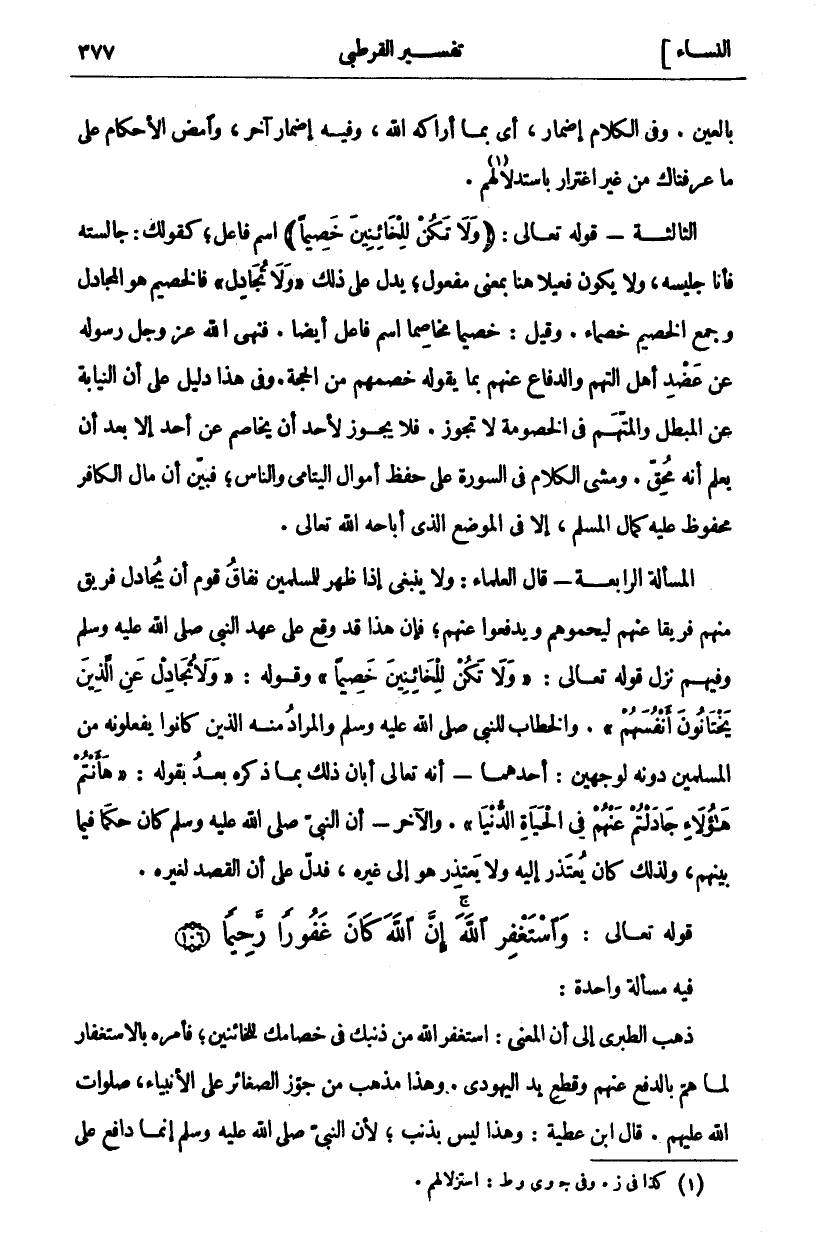 النساء ] تفسير القرطبي ٣٧٧
بالعين . وفى الكلام إضمار ، أى بما أراكه الله ، وفيه إضمار آخر ، وآمض الأحكام على
ما عرفناك من غير اغترار باستدلالهم(١) .
الثالثة – قوله تعالى : ﴿وَلَا تَكُنْ لِلْخَائِنِينَ خَصِيماً﴾ اسم فاعل ؛ كقولك : جالسته
فأنا جليسه ، ولا يكون فعيلا هنا بمعنى مفعول ؛ يدل على ذلك «وَلَا تُجَادِل» فالخصيم هو المجادل
وجمع الخصيم خصماء . وقيل : خصيما مخاصما اسم فاعل أيضا . فنهى الله عز وجل رسوله
عن عَضْدِ أهل التهم والدفاع عنهم بما يقوله خصمهم من الحجة . وفى هذا دليل على أن النيابة
عن المبطل والمتّهَم فى الخصومة لا تجوز . فلا يجوز لأحد أن يخاصم عن أحد إلا بعد أن
يعلم أنه مُحِقّ . ومشى الكلام فى السورة على حفظ أموال اليتامى والناس ؛ فبيّن أن مال الكافر
محفوظ عليه كمال المسلم ، إلا فى الموضع الذى أباحه الله تعالى .
المسألة الرابعة – قال العلماء : ولا ينبغى إذا ظهر للمسلمين نفاقُ قوم أن يُجادل فريق
منهم فريقا عنهم ليحموهم ويدفعوا عنهم ؛ فإن هذا قد وقع على عهد النبي صلى الله عليه وسلم
وفيهم نزل قوله تعالى : « وَلَا تَكُنْ لِلْخَائِنِينَ خَصِيماً » وقوله : « وَلَا تُجَادِلْ عَنِ الَّذِينَ
يَخْتَانُونَ أَنْفُسَهُمْ » . والخطاب للنبي صلى الله عليه وسلم والمرادُ منه الذين كانوا يفعلونه من
المسلمين دونه لوجهين : أحدهما – أنه تعالى أبان ذلك بما ذكره بعدُ بقوله : « هَأَنْتُمْ
هَؤُلَاءِ جَادَلْتُمْ عَنْهُمْ فِى الْحَيَاةِ الدُّنْيَا » . والآخر – أن النبيّ صلى الله عليه وسلم كان حكما فيما
بينهم ، ولذلك كان يُعتَذر إليه ولا يَعتِذر هو إلى غيره ، فدلّ على أن القصد لغيره .
قوله تعالى : وَٱسْتَغْفِرِ ٱللَّهَ ۖ إِنَّ ٱللَّهَ كَانَ غَفُورًا رَّحِيمًا ﴿١٠٦﴾
فيه مسألة واحدة :
ذهب الطبرى إلى أن المعنى : استغفر الله من ذنبك فى خصامك للخائنين ؛ فأمره بالاستغفار
لما همّ بالدفع عنهم وقطعِ يد اليهودى . وهذا مذهب من جوّز الصغائر على الأنبياء ، صلوات
الله عليهم . قال ابن عطية : وهذا ليس بذنب ؛ لأن النبيّ صلى الله عليه وسلم إنما دافع على
(١) كذا فى ز . وفى جـ و ى و ط : استزلالهم .